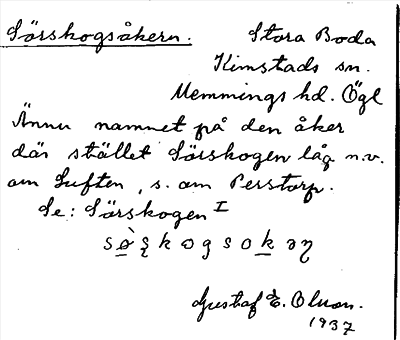 Sörskogsåkern. Stora Boda
Kimstads sn.
Memmings hd. Ögl
Ännu namnet på den åker
där stället Sörskogen låg n.v.
om Luften, s. om Perstorp.
Se: Sörskogen I
Gustaf E. Olson.
1937